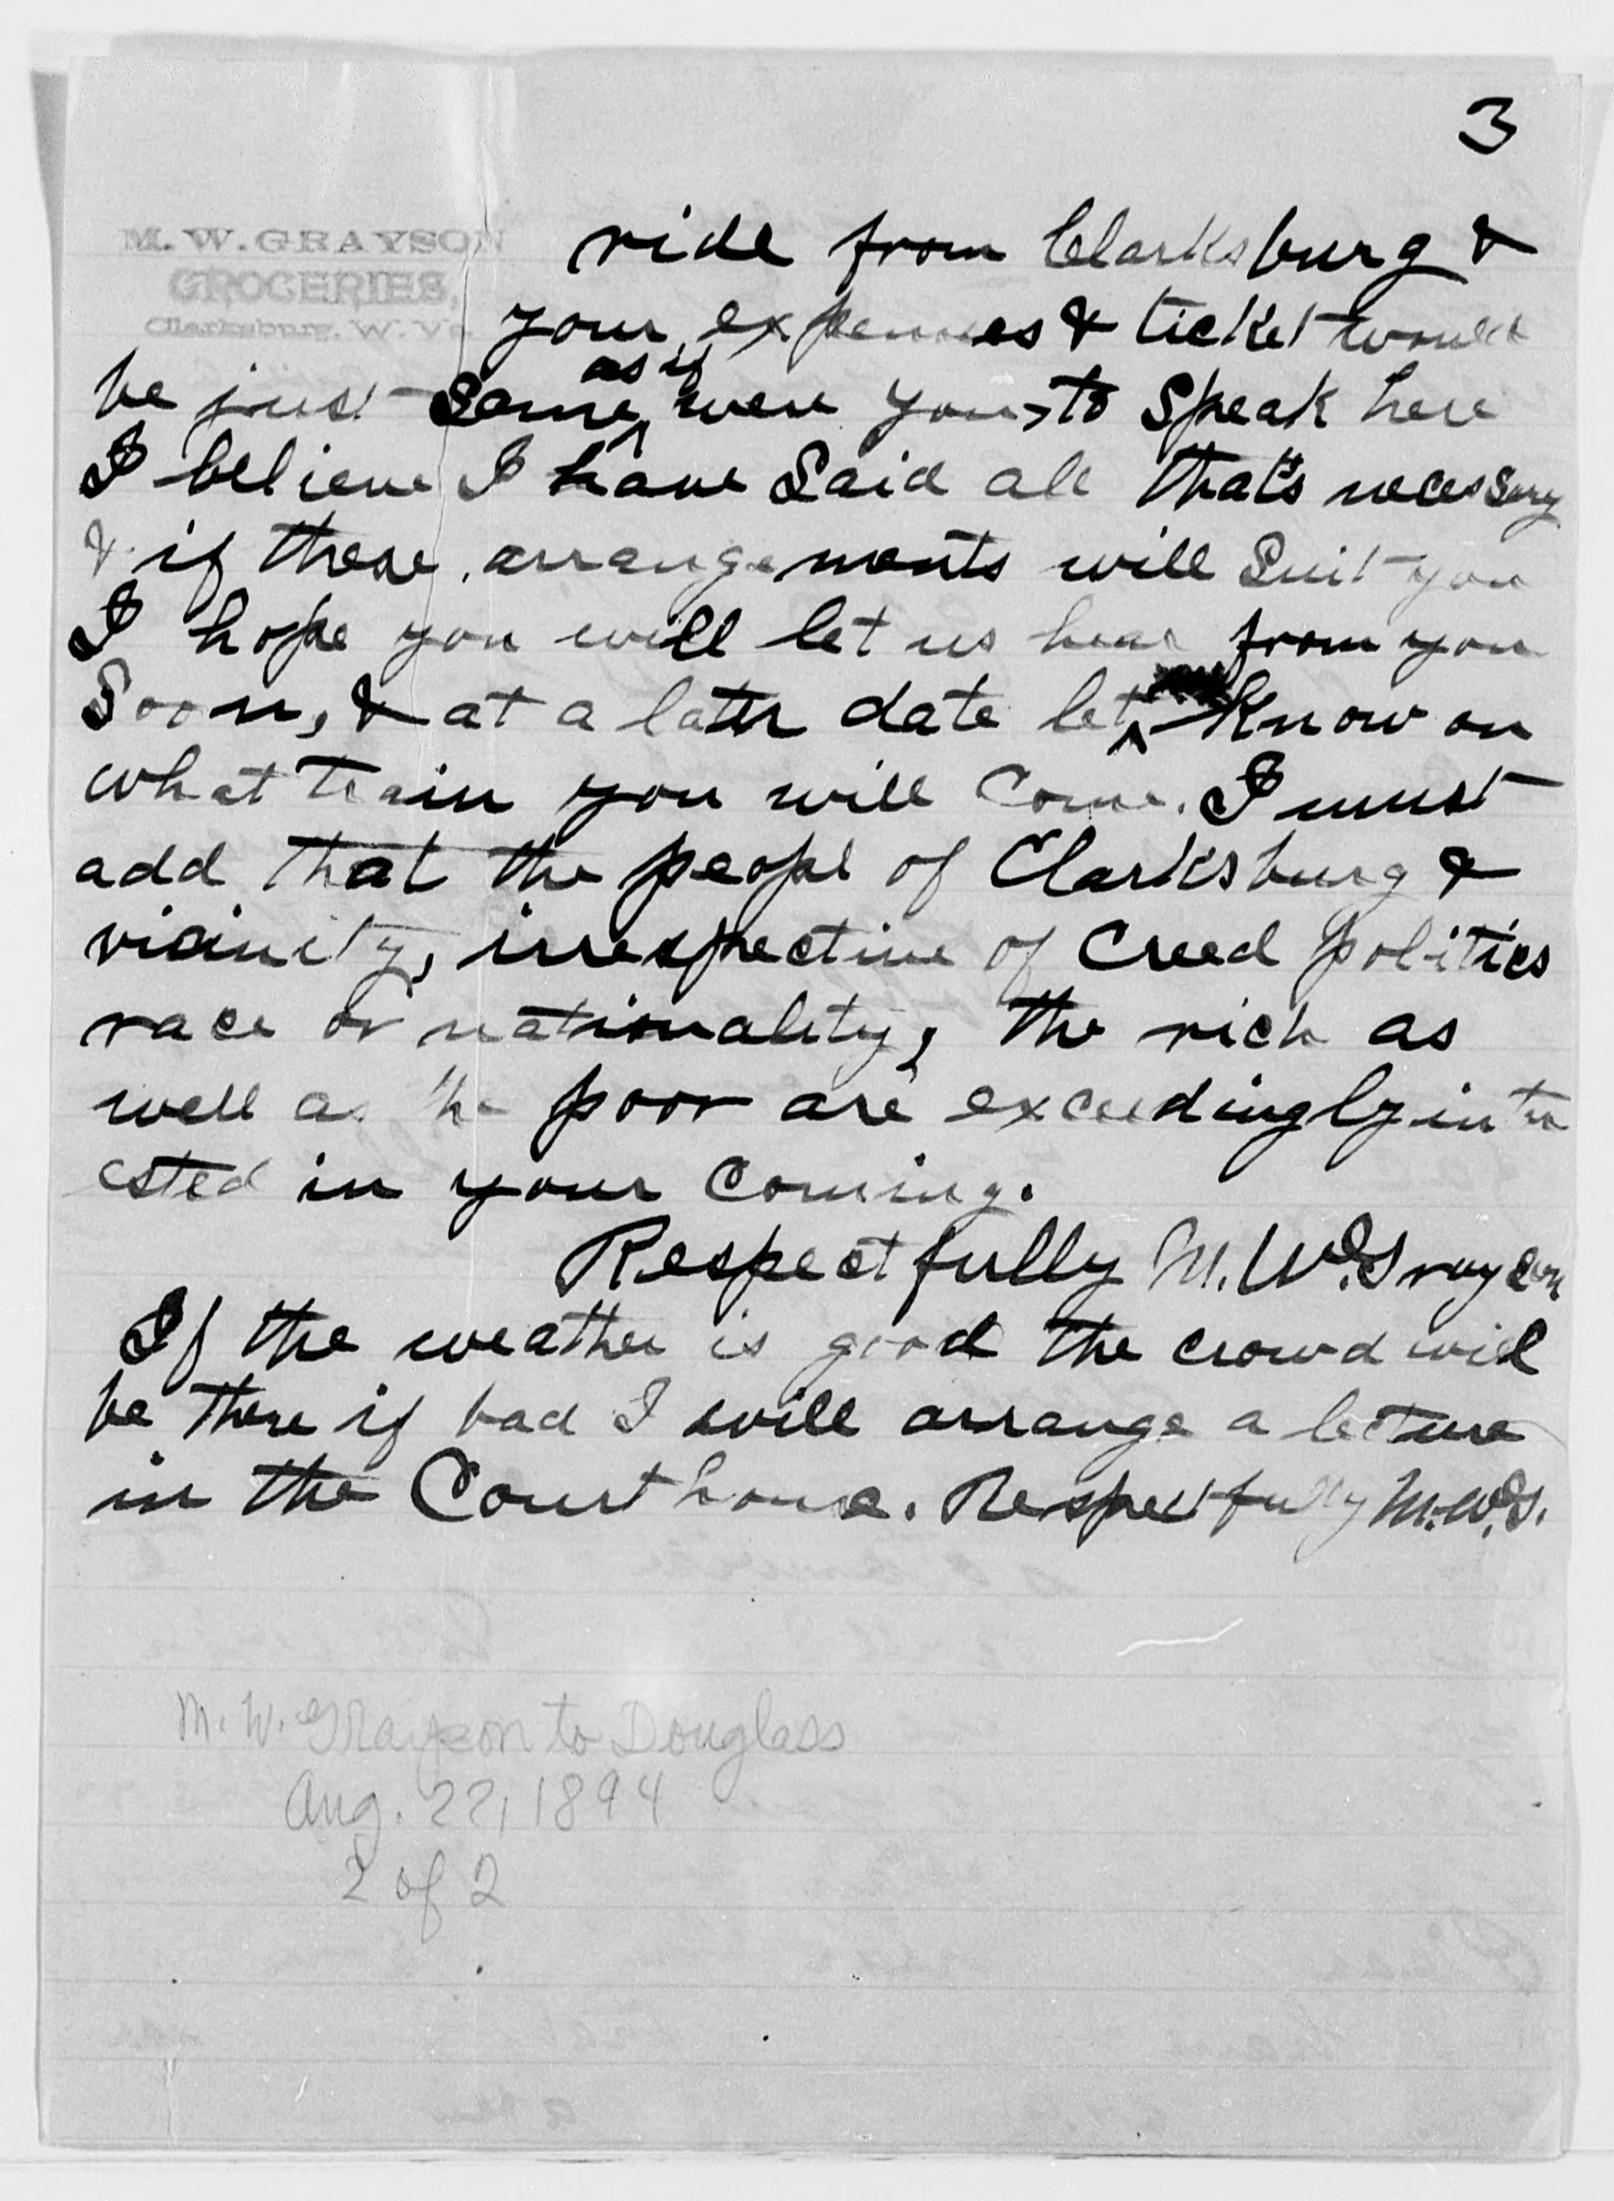 3
M. W. GRAYSON
GROCERIES,
Clarksburg, W. Va.
ride from Clarksburg &
your expenses & ticket would
be just same as if were you to speak here
I believe I have said all that's necessary
& if these arrangements will suit you
I hope you will let us hear from you
soon, & at a later date let know on
what train you will come. I must
add that the peopl of Clarksburg &
vicinity, irrespective of creed politics
race or nationality, the rich as
well as the poor are exceedingly inter
ested in your coming.
Respectfully M. W. Grayson
If the weather is good the crowd will
be there if bad I will arrange a lecture
in the Court house. Respectfully M.W.G.
M. W. Grayson to Douglass
Aug. 22, 1894
2 of 2